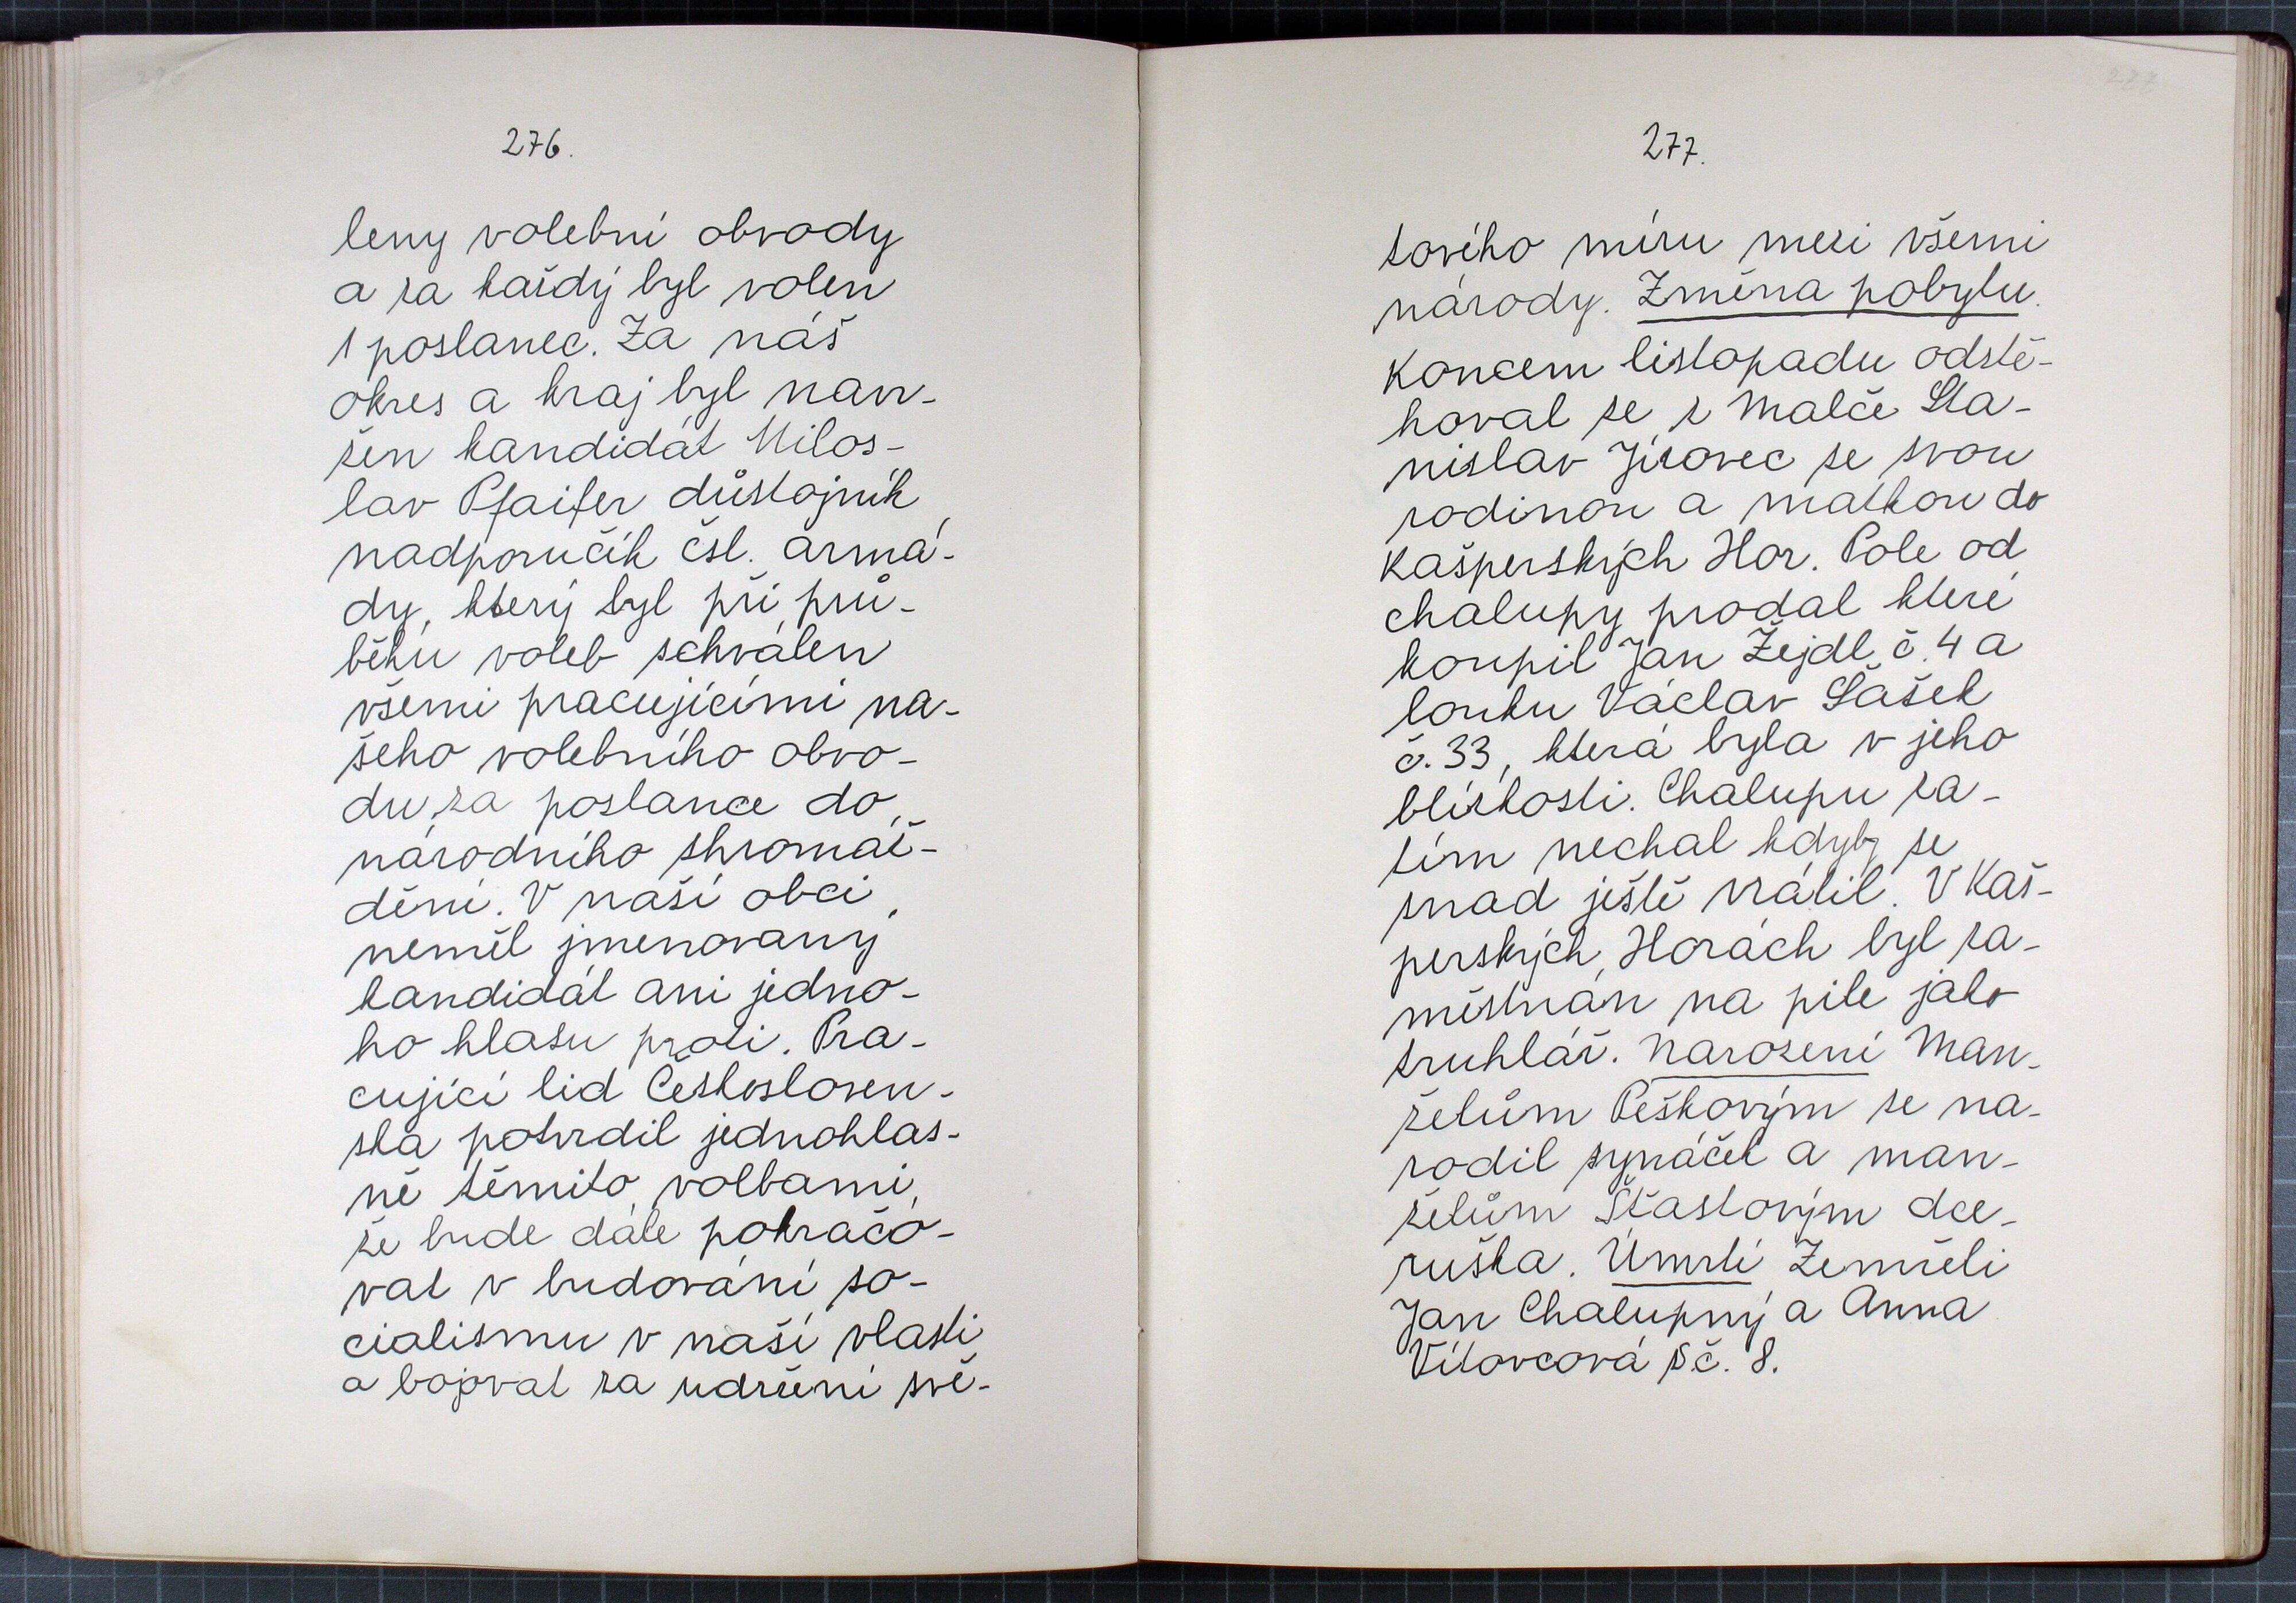 276.
leny volební obvody
a za každý byl volen
1 poslanec. Za náš
okres a kraj byl navr-
žen kandidát Milos-
lav Pfaifer důstojník
nadporučík čsl. armá-
dy, který byl při prů-
běhu voleb schválen
všemi pracujícími na-
šeho volebního obvo-
du za poslance do
národního shromáž-
dění. V naší obci
neměl jmenovaný
kandidát ani jedno-
ho hlasu proti. Pra-
cující lid Českosloven-
ska potvrdil jednohlas-
ně těmito volbami,
že bude dále pokračo-
vat v budování so-
cialismu v naší vlasti
a bojovat za udržení svě-
277.
tového míru mezi všemi
národy. Změna pobytu.
Koncem listopadu odstě-
hoval se z Malče Sta-
nislav Jírovec se svou
rodinou a matkou do
Kašperských Hor. Pole od
chalupy prodal které
koupil Jan Žejdl č. 4 a
louku Václav Sašek
č. 33, která byla v jeho
blízkosti. Chalupu za-
tím nechal kdyby se
snad ještě vrátil. V Kaš-
perských Horách byl za-
městnán na pile jako
truhlář. Narození Man-
želům Peškovým se na-
rodil synáček a man-
želům Šťastovým dce-
ruška. Úmrtí Zemřeli
Jan Chalupný a Anna
Vítovcová s č. 8.